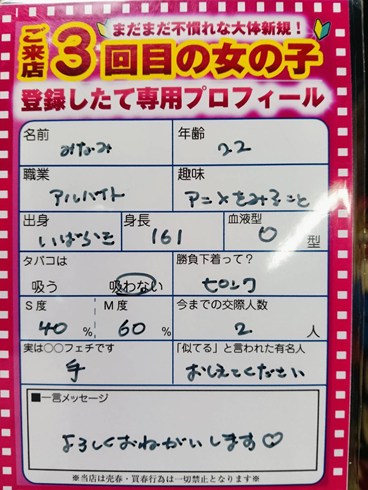 まだまだ不慣れな大体新規！
ご来店3回目の女の子
登録したて専用プロフィール
名前 みなみ
年齢 22
職業 アルバイト
趣味 アニメをみること
出身 いばらき
身長 161
血液型 O 型
タバコは 吸う 吸わない
勝負下着って？ ピンク
S度 40 %
M度 60 %
今までの交際人数 2 人
実は○○フェチです 手
「似てる」と言われた有名人 おしえてください
■一言メッセージ
よろしくおねがいします♡
※当店は売春・買春行為は一切禁止となります※